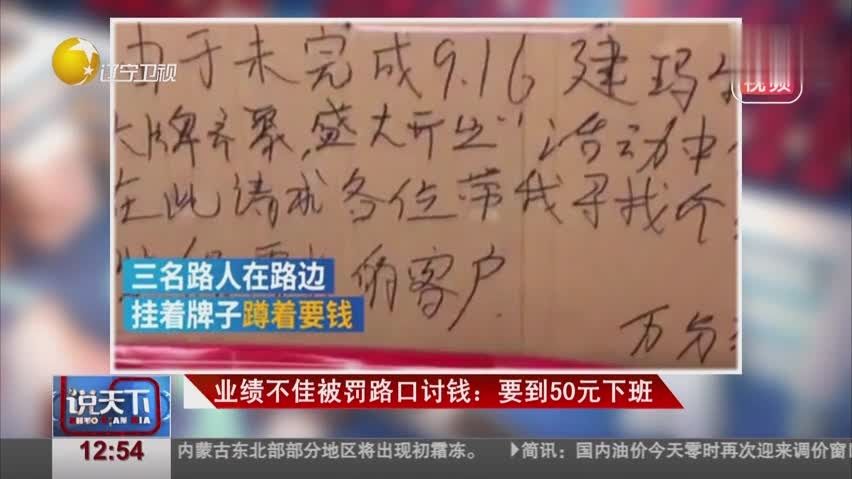 辽宁卫视
视频
由于未完成9.16建玛
大牌齐聚,盛大开业"活动中
在此请求各位带我寻找个
的客户
万分
三名路人在路边
挂着牌子蹲着要钱
业绩不佳被罚路口讨钱:要到50元下班
说天下
12:54
内蒙古东北部部分地区将出现初霜冻。 ▶简讯:国内油价今天零时再次迎来调价窗